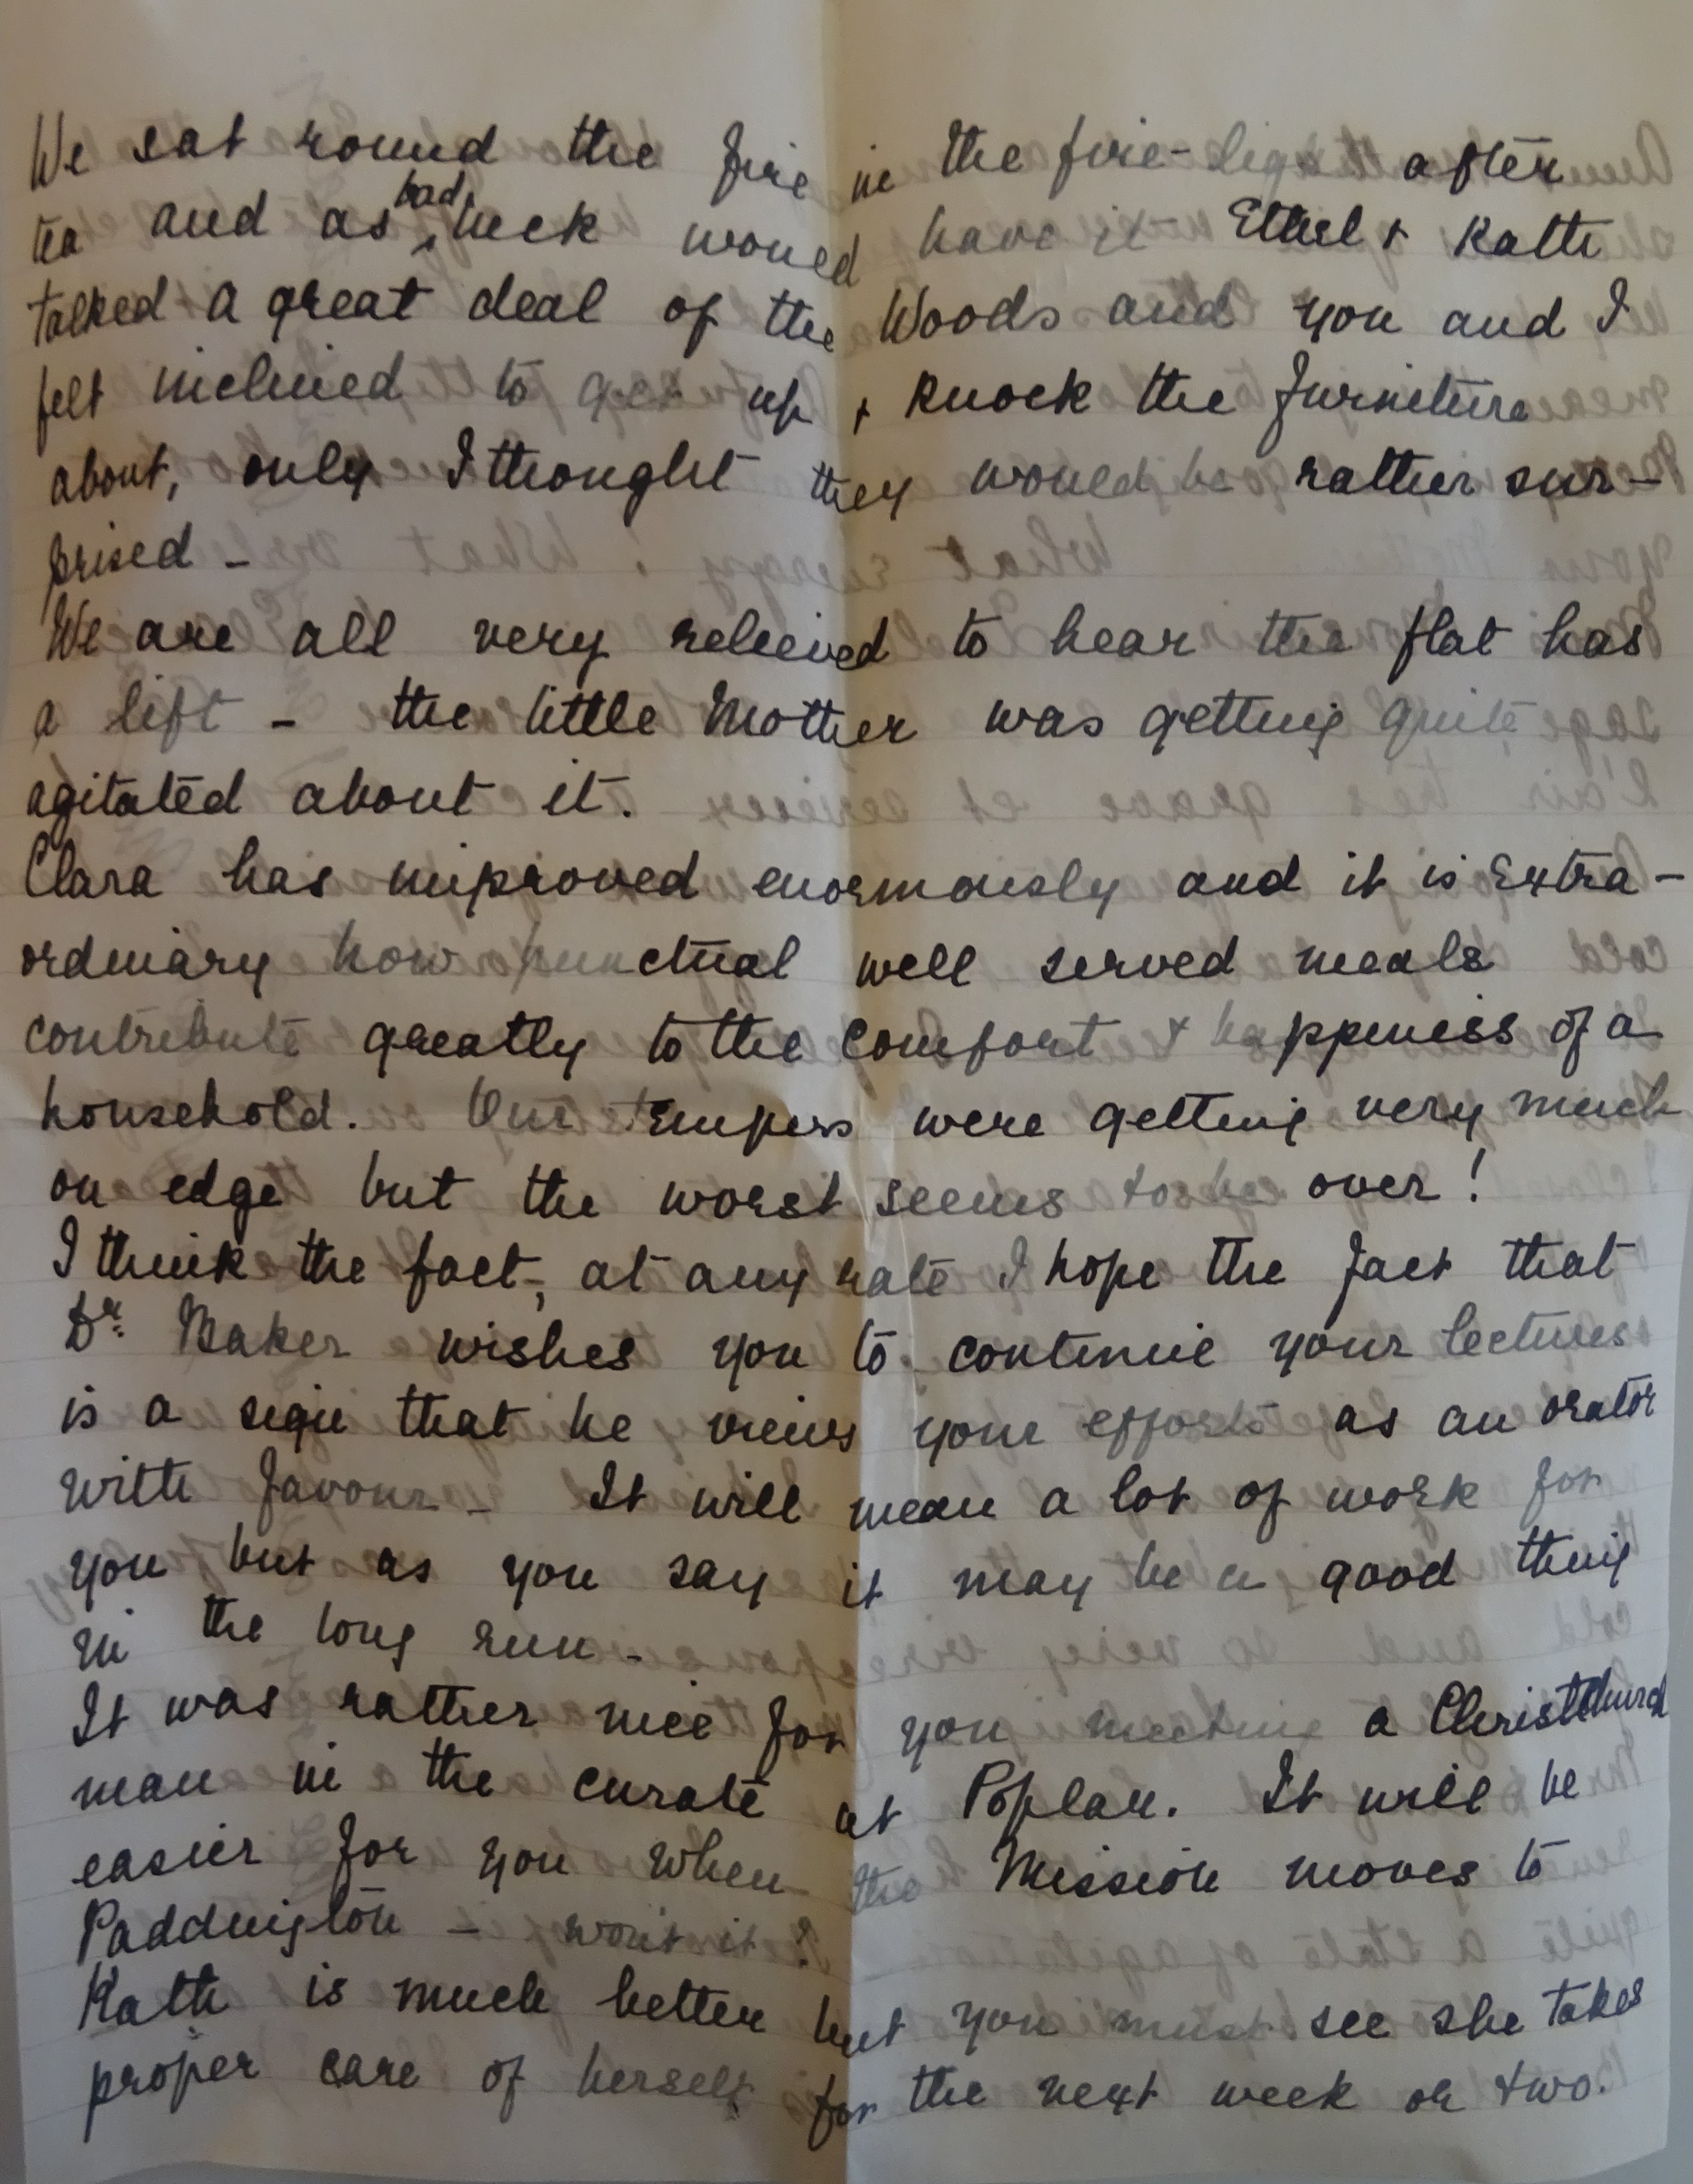 We sat round the fire in the fire-light after
tea and as bad luck would have it Ethel + Kath
talked a great deal of the Woods and you and I
felt inclined to get up + knock the furniture
about, only I thought they would be rather sur-
prised -
We are all very relieved to hear the flat has
a lift - the little Mother was getting quite
agitated about it.
Clara has improved enormously and it is extra-
ordinary how punctual well served meals
contribute greatly to the comfort + happiness of a
household. Our tempers were getting very much
on edge but the worst seems to be over!
I think the fact, at any rate I hope the fact that
Dr. Baker wishes you to continue your lectures
is a sign that he views your efforts as an orator
with favour - It will mean a lot of work for
you but as you say it may be a good thing
in the long run -
It was rather nice for you meeting a Christchurch
man in the curate at Poplar. It will be
easier for you when the Mission moves to
Paddington - won't it?
Kath is much better but you must see she takes
proper care of herself for the next week or two.